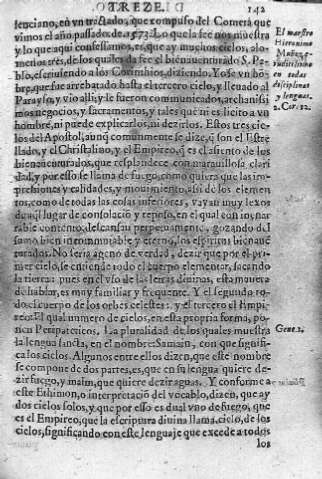 DIEZE. 142
lenciano, en vn tractado, que compuso del Cometa que
vimos el año passado de 1573. Lo que la fee nos muestra
y lo que aqui confessamos, es, que ay muchos cielos, alo-
menos tres, de los quales da fee el bienauenturado S. Pa-
blo, escriuiendo a los Corinthios, diziendo. Yo se vn hõ-
bre, que fue arrebatado hasta el tercero cielo, y lleuado al
Parayso, y vio alli, y le fueron communicados, archanissi
mos negocios, y sacramentos, y tales que ni es licito a vn
hombre, ni puede explicarlos, ni dezirlos. Estos tres cie-
los del Apostol, aunq communmente se dize, q son el Estre
llado, y el Christalino, y el Empireo, q es el asiento de los
bienauenturados, que resplandece con marauillosa clari
dad, y por esso se llama de fuego, como quiera que las im-
pressiones y calidades, y mouimiento, assi de los elemen
tos, como de todas las cosas inferiores, vayan muy lexos
de aql lugar de consolacio y reposo, en el qual con ioy nar
rable contento, descansan perpetuamente, gozando dl
sumo bien incommutable y eterno, los espiritus bienaue
turados. No seria ageno de verdad, dezir que por el pri-
mer cielo, se entiende todo el cuerpo elementar, sacando
la tierra: pues en el vso de las letras diuinas, esta manera
de hablar, es muy familiar y frequente. Y el segundo to-
do el cuerpo de los orbes celestes: y el tercero el Empi-
reo. El qual numero de cielos, en esta propria forma, po-
nen los Peripateticos. La pluralidad de los quales muestra
la lengua sancta, en el nombre: Samaim, con que signifi-
ca los cielos. Algunos entre ellos dizen, que este nombre
se compone de dos partes, es, que en su lengua quiere de-
zir fuego, y maim, que quiere dezir aguas. Y conforme a
este Ethimon, o interpretaciõ del vocablo, dizen, que ay
dos cielos solos, y que por esso es dual vno de fuego, que
es el Empireo, que la escriptura diuina llama, cielo, de los
cielos, significando con este lenguaje que excede a todos
los
El maestro
Hieronimo
Muñoz,
en todas
disciplinas
y lenguas.
2. Cor. 12.
Gene. 1.